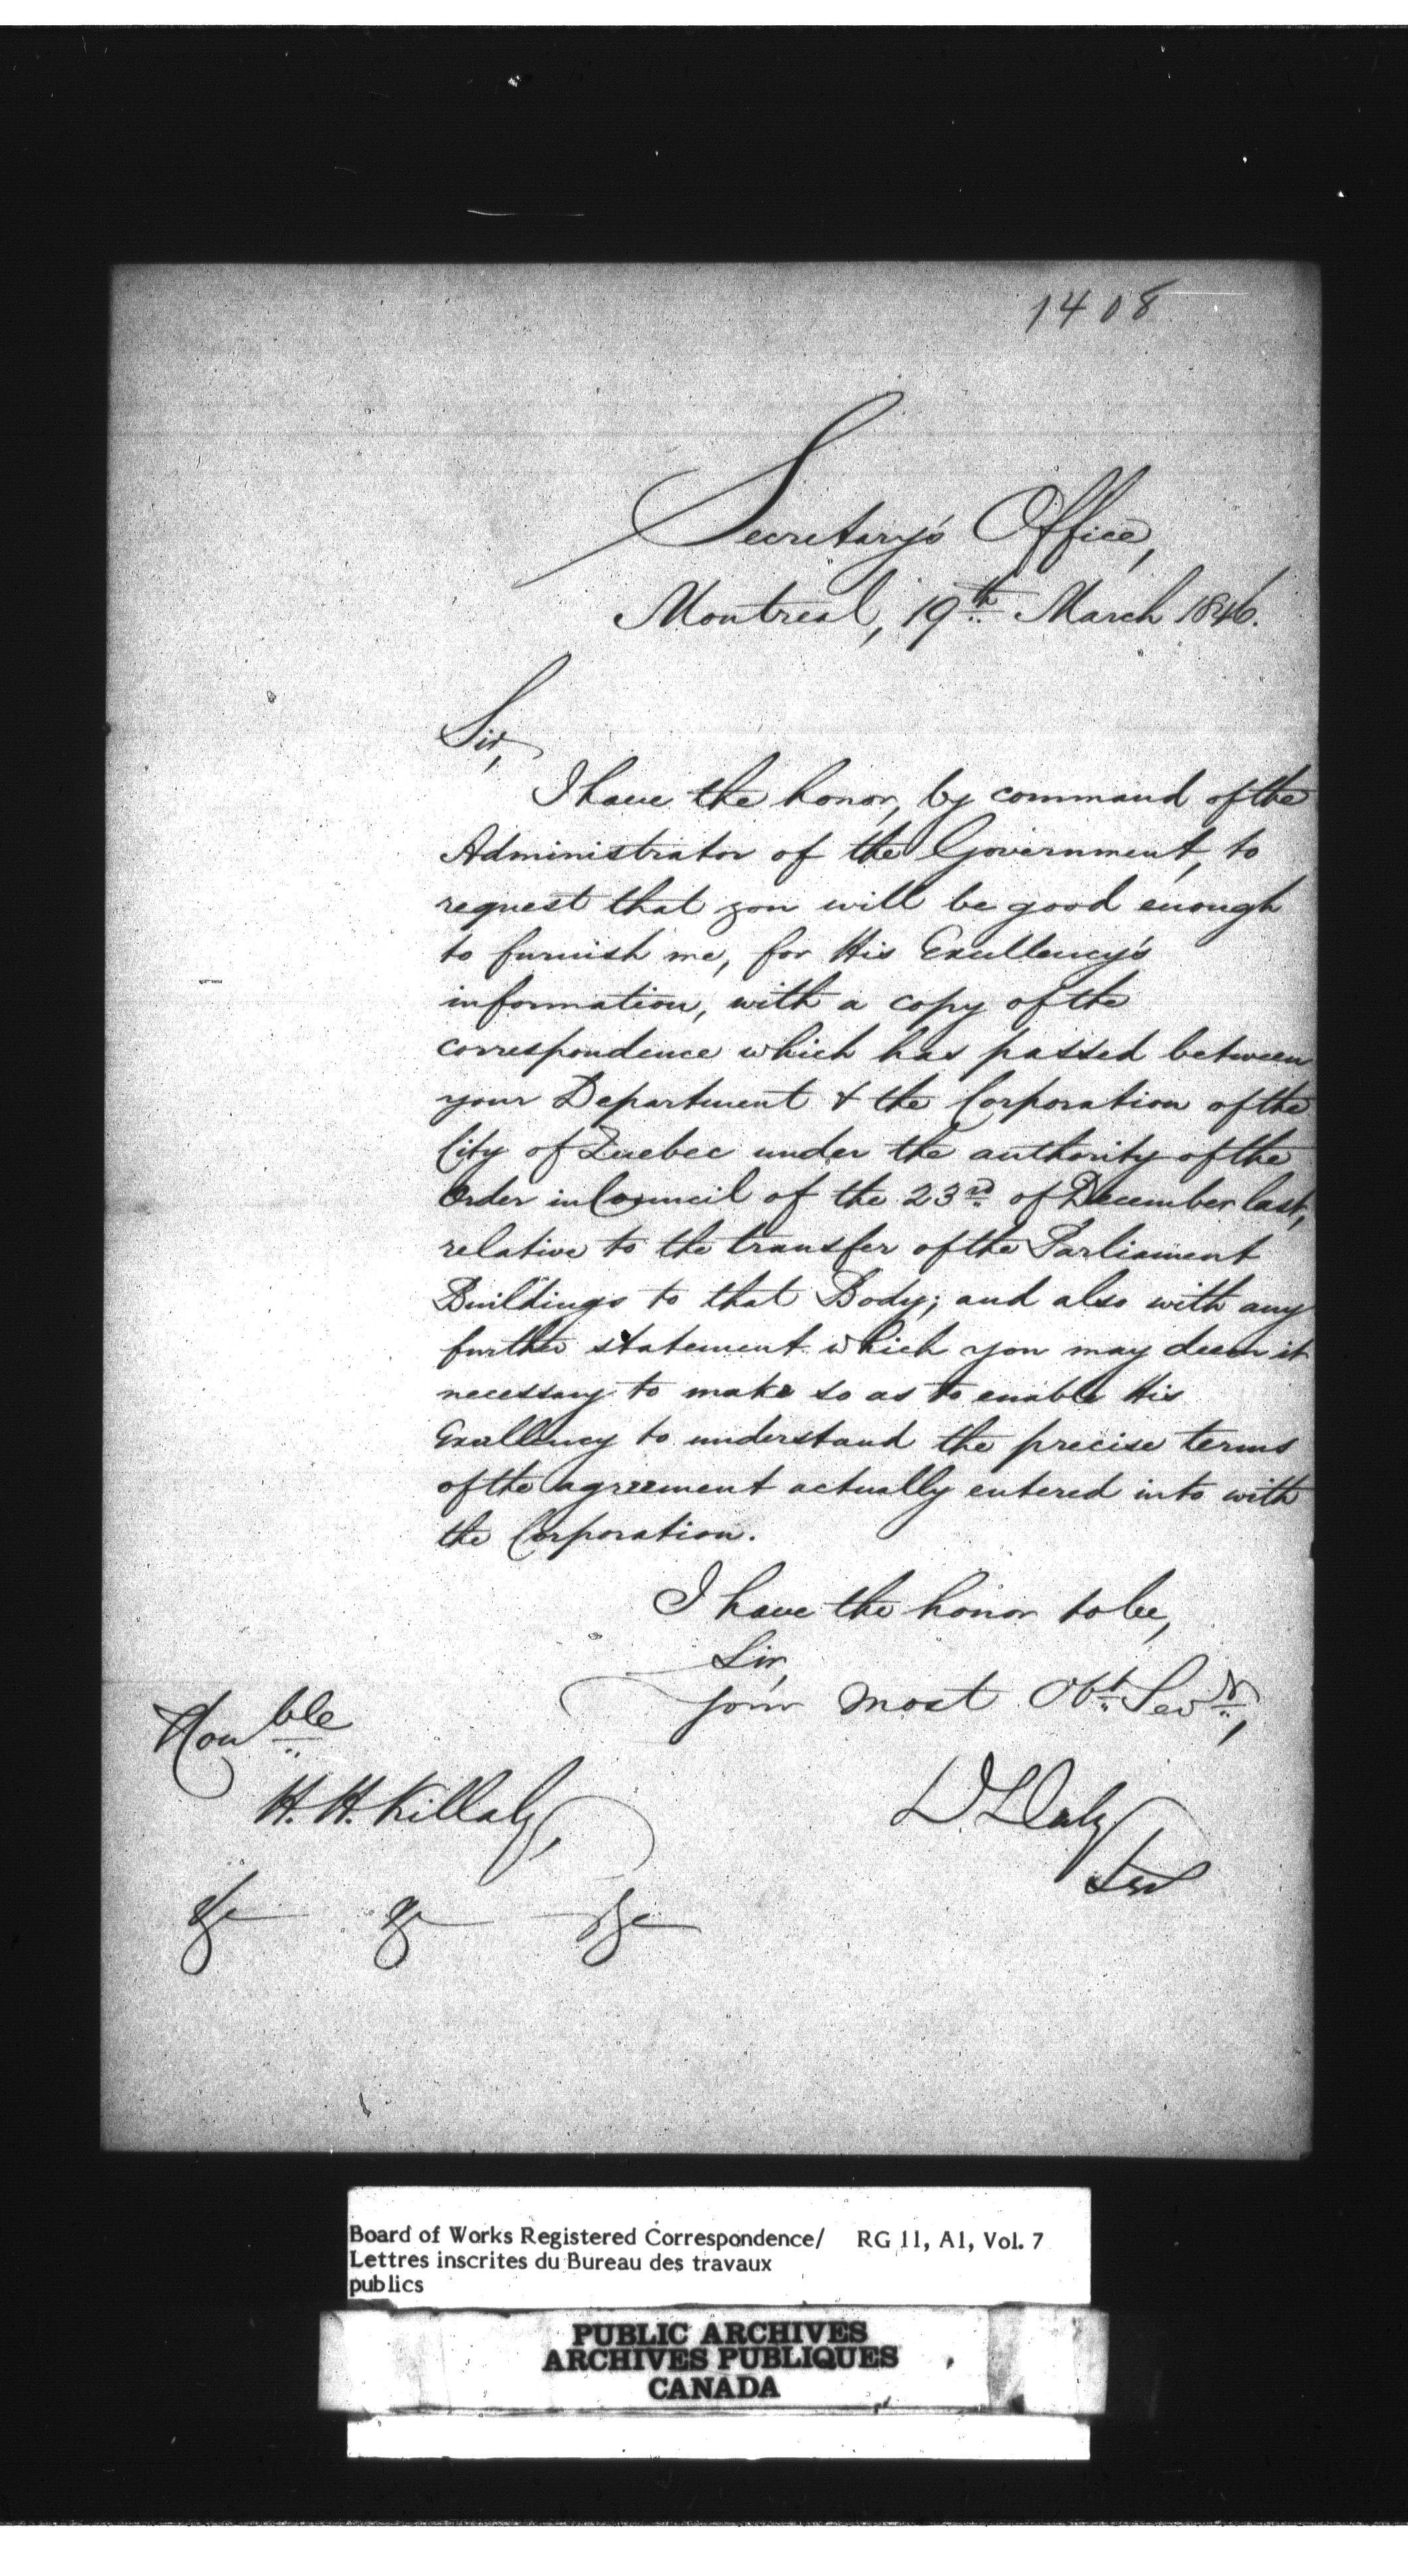 1408
Secretary's Office,
Montreal, 19th March 1846.
Sir,
I have the honor, by command of the
Administrator of the Government, to
request that you will be good enough
to furnish me, for His Excellency's
information, with a copy of the
correspondence which has passed between
your Department & the Corporation of the
City of Quebec under the authority of the
Order in Council of the 23rd of December last,
relative to the transfer of the Parliament
Buildings to that Body; and also with any
further statement which you may deem it
necessary to make so as to enable His
Excellency to understand the precise terms
of the agreement actually entered into with
the Corporation.
I have the honor to be,
Sir,
Your most Obt. Servt.,
D. Daly
Sec
Honble
H. H. Killaly,
&c &c &c
Board of Works Registered Correspondence/ RG 11, A1, Vol. 7
Lettres inscrites du Bureau des travaux
publics
PUBLIC ARCHIVES
ARCHIVES PUBLIQUES
CANADA